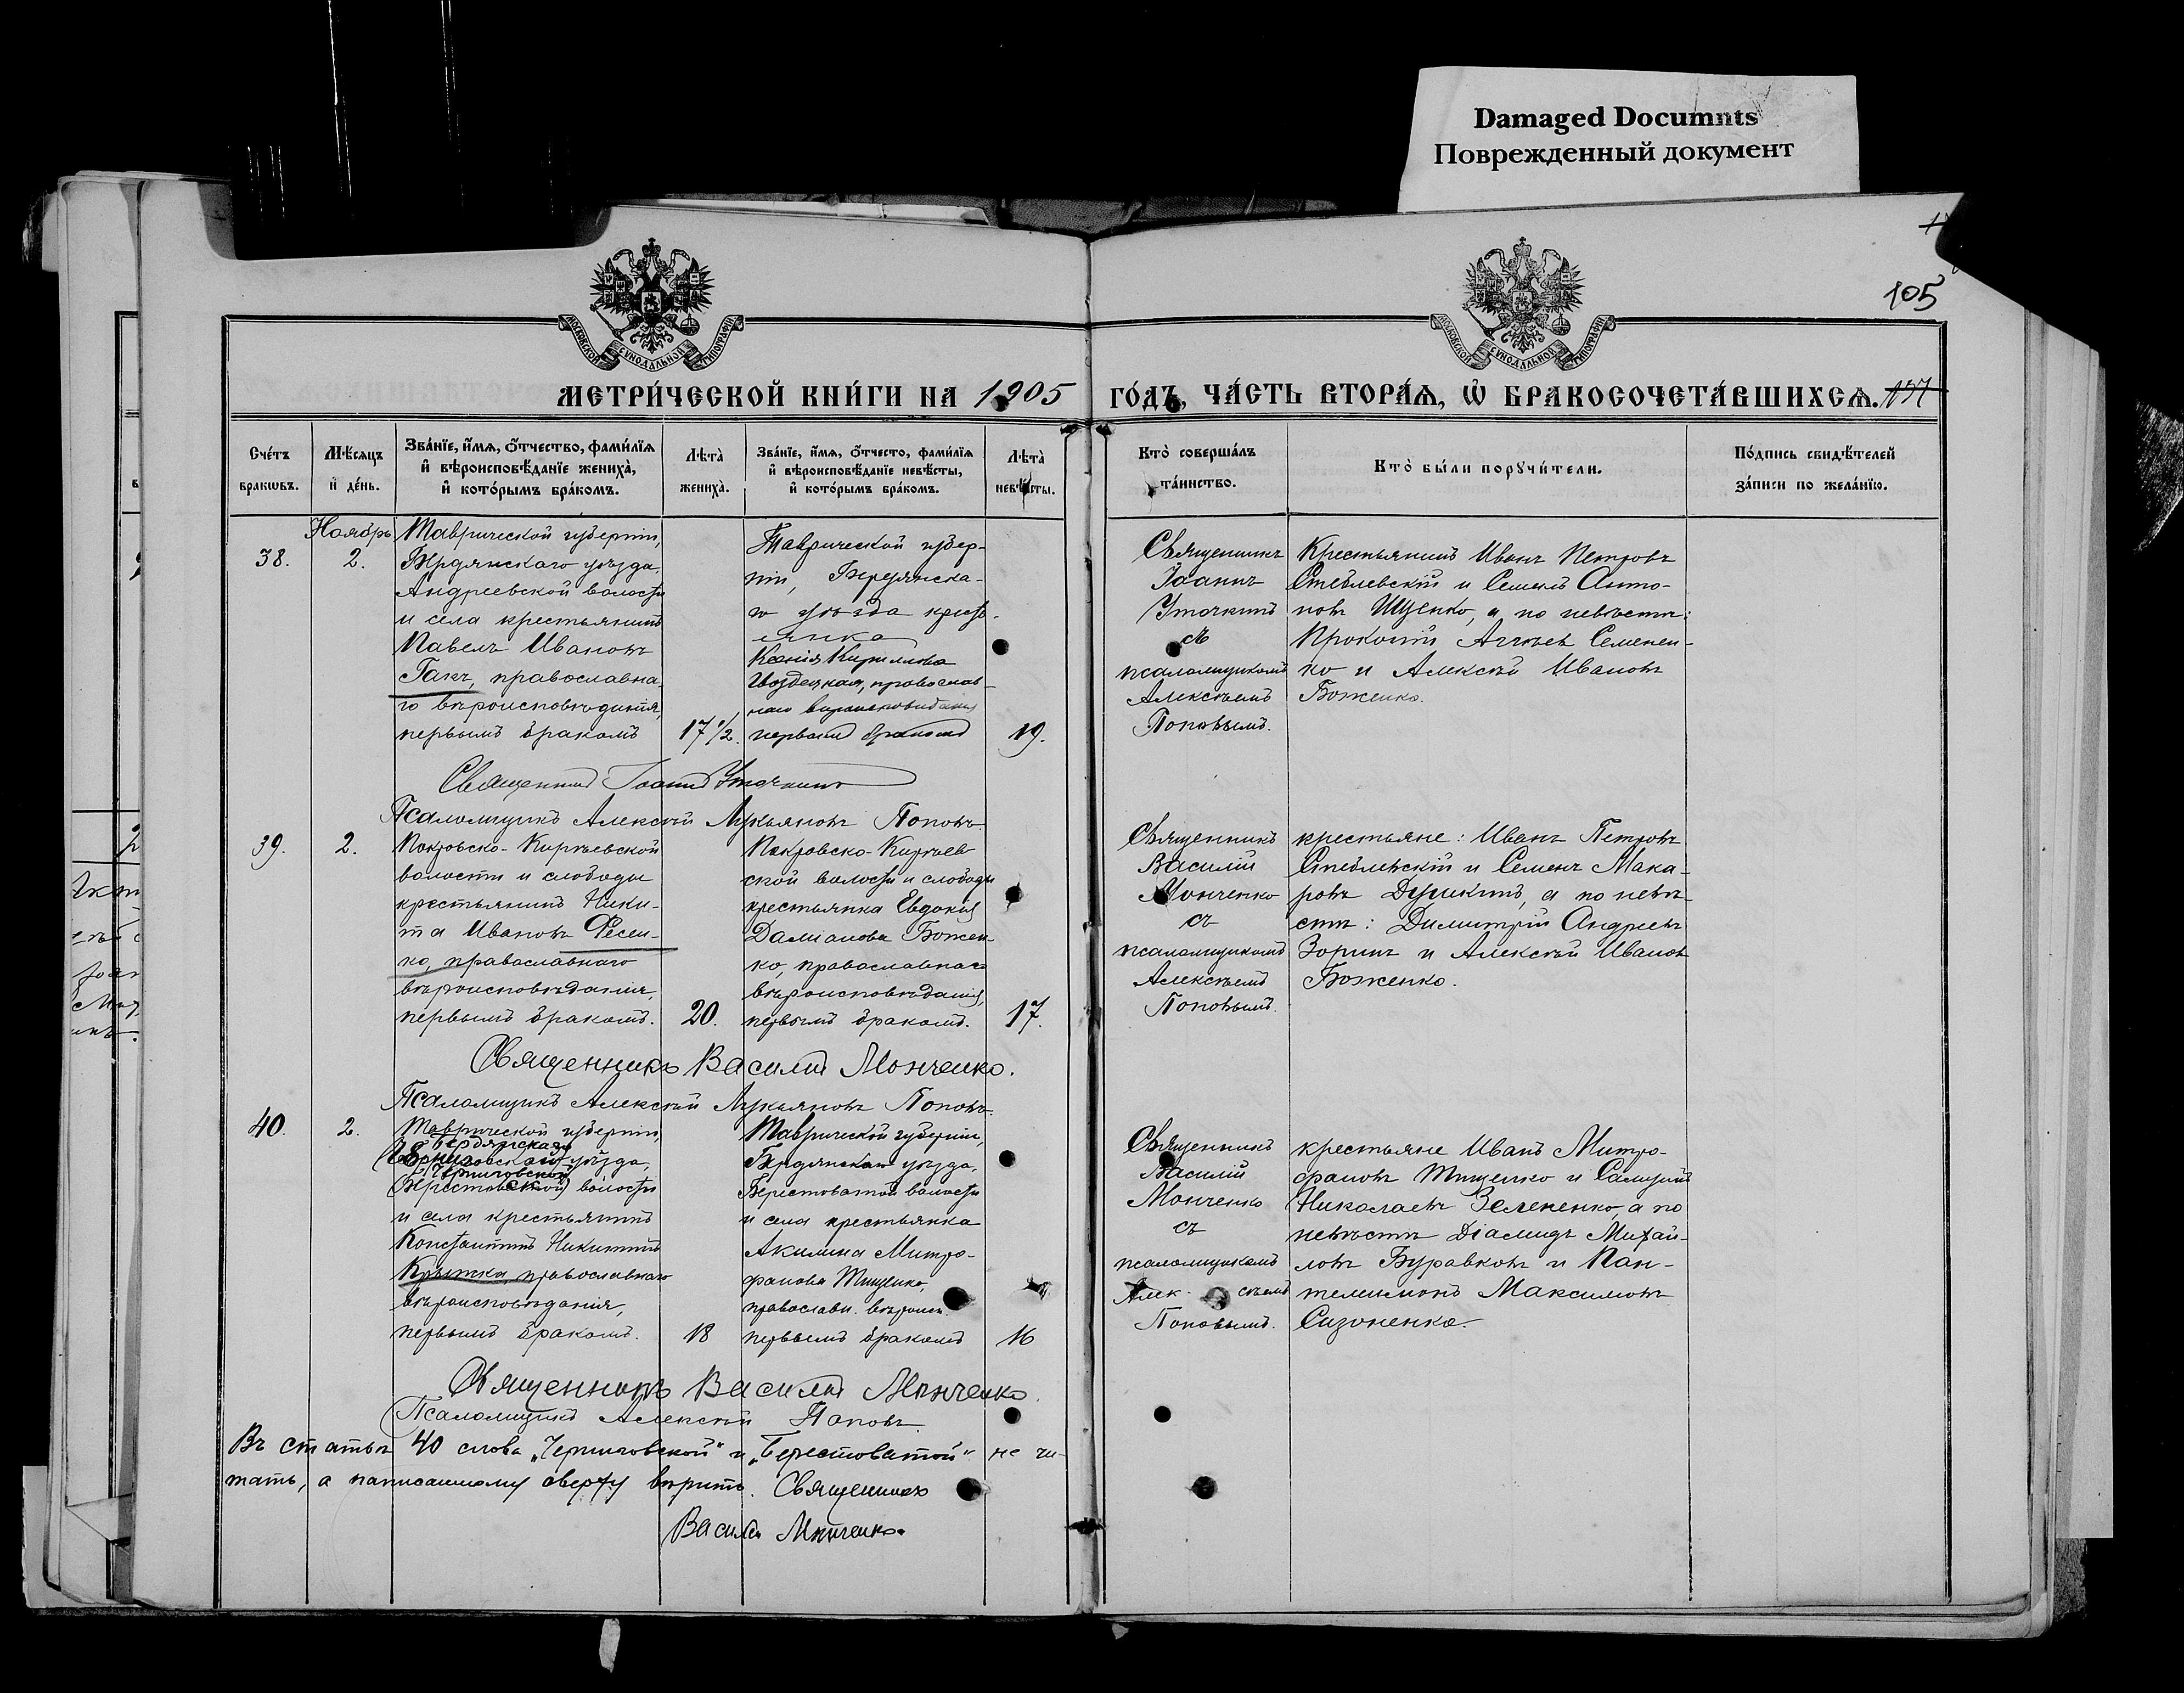 Damaged Documnts
Поврежденный документ
105
МОСКОВСКОЙ СУНОДАЛЬНОЙ ТИПОГРАФІИ
МОСКОВСКОЙ СУНОДАЛЬНОЙ ТИПОГРАФІИ
МЕТРИ́ЧЕСКОЙ КНИ́ГИ НА 1905 ГО́ДЪ, ЧА́СТЬ ВТОРА́Ѧ, Ѡ҆ БРАКОСОЧЕТА́ВШИХСѦ.
Сче́тъ бракѡвъ.
Мѣ́сѧцъ и҆ де́нь.
Зва́нїе, и҆́мѧ, ѻ҆́тчество, фами́лїѧ
и҆ вѣроисповѣ́данїе жениха̀,
и҆ кото́рымъ бра́комъ.
Лѣта̀ жениха̀.
Зва́нїе, и҆́мѧ, ѻ҆́тчесто, фами́лїѧ
и҆ вѣроисповѣ́данїе невѣ́сты,
и҆ кото́рымъ бра́комъ.
Лѣта̀ невѣ́сты.
Кто̀ соверша́лъ
та́инство.
Кто̀ бы́ли порꙋчи́тели.
По́дпись свидѣ́телей
за́писи по жела́нїю.
38.
Ноябрь
2.
Таврической губерніи,
Бердянскаго уѣзда,
Андреевской волости
и села крестьянинъ
Павелъ Ивановъ
Гакъ, православна-
го вѣроисповѣданія,
первымъ бракомъ
17 1/2.
Таврической губер-
ніи, Бердянска-
го уѣзда кресть-
янка
Ксенія Кириллова
Гвоздецкая, православ-
наго вѣроисповѣданія
первымъ бракомъ
19.
Священникъ
Іоаннъ
Уточкинъ
съ
псаломщикомъ
Алексѣемъ
Поповымъ.
Крестьянинъ Иванъ Петровъ
Стеблевскій и Семенъ Анто-
новъ Ищенко, а по невѣстѣ:
Прокопій Аггѣевъ Семенен-
ко и Алексѣй Ивановъ
Боженко.
Священникъ Іоаннъ Уточкинъ
Псаломщикъ Алексѣй Лукьяновъ Поповъ.
39.
2.
Покровско-Киреевской
волости и слободы
крестьянинъ Ники-
та Ивановъ Фесен-
ко, православнаго
вѣроисповѣданія,
первымъ бракомъ.
20.
Покровско-Киреев-
ской волости и слободы
крестьянка Евдокія
Даміанова Божен-
ко, православнаго
вѣроисповѣданія,
первымъ бракомъ.
17.
Священникъ
Василій
Монченко
съ
псаломщикомъ
Алексѣемъ
Поповымъ.
крестьяне: Иванъ Петровъ
Стеблевскій и Семенъ Мака-
ровъ а по невѣ-
стѣ: Димитрій Андреевъ
Зоринъ и Алексѣй Ивановъ
Боженко.
Священникъ Василій Монченко.
Псаломщикъ Алексѣй Лукьяновъ Поповъ.
40.
2.
Таврической губерніи,
Бердянскаго
уѣзда,
Черниговской
волости
и села крестьянинъ
Константинъ Никитинъ
православнаго
вѣроисповѣданія,
первымъ бракомъ.
18
Таврической губерніи,
Бердянскаго уѣзда,
Берестоватой волости
и села крестьянка
Акилина Митро-
фанова Тищенко,
православн. вѣроисп.
первымъ бракомъ
16
Священникъ
Василій
Монченко
съ
псаломщикомъ
Алексѣемъ
Поповымъ.
крестьяне Иванъ Митро-
фановъ Тищенко и
Николаевъ Зелененко, а по
невѣстѣ Діамидъ Михай-
ловъ Буравковъ и Пан-
телеимонъ Максимовъ
Сизоненко.
Священникъ Василій Монченко.
Псаломщикъ Алексѣй Поповъ.
Въ статьѣ 40 слова „Черниговской" и „Берестоватой" не чи-
тать, а написанному сверху вѣрить. Священникъ
Василій Монченко.